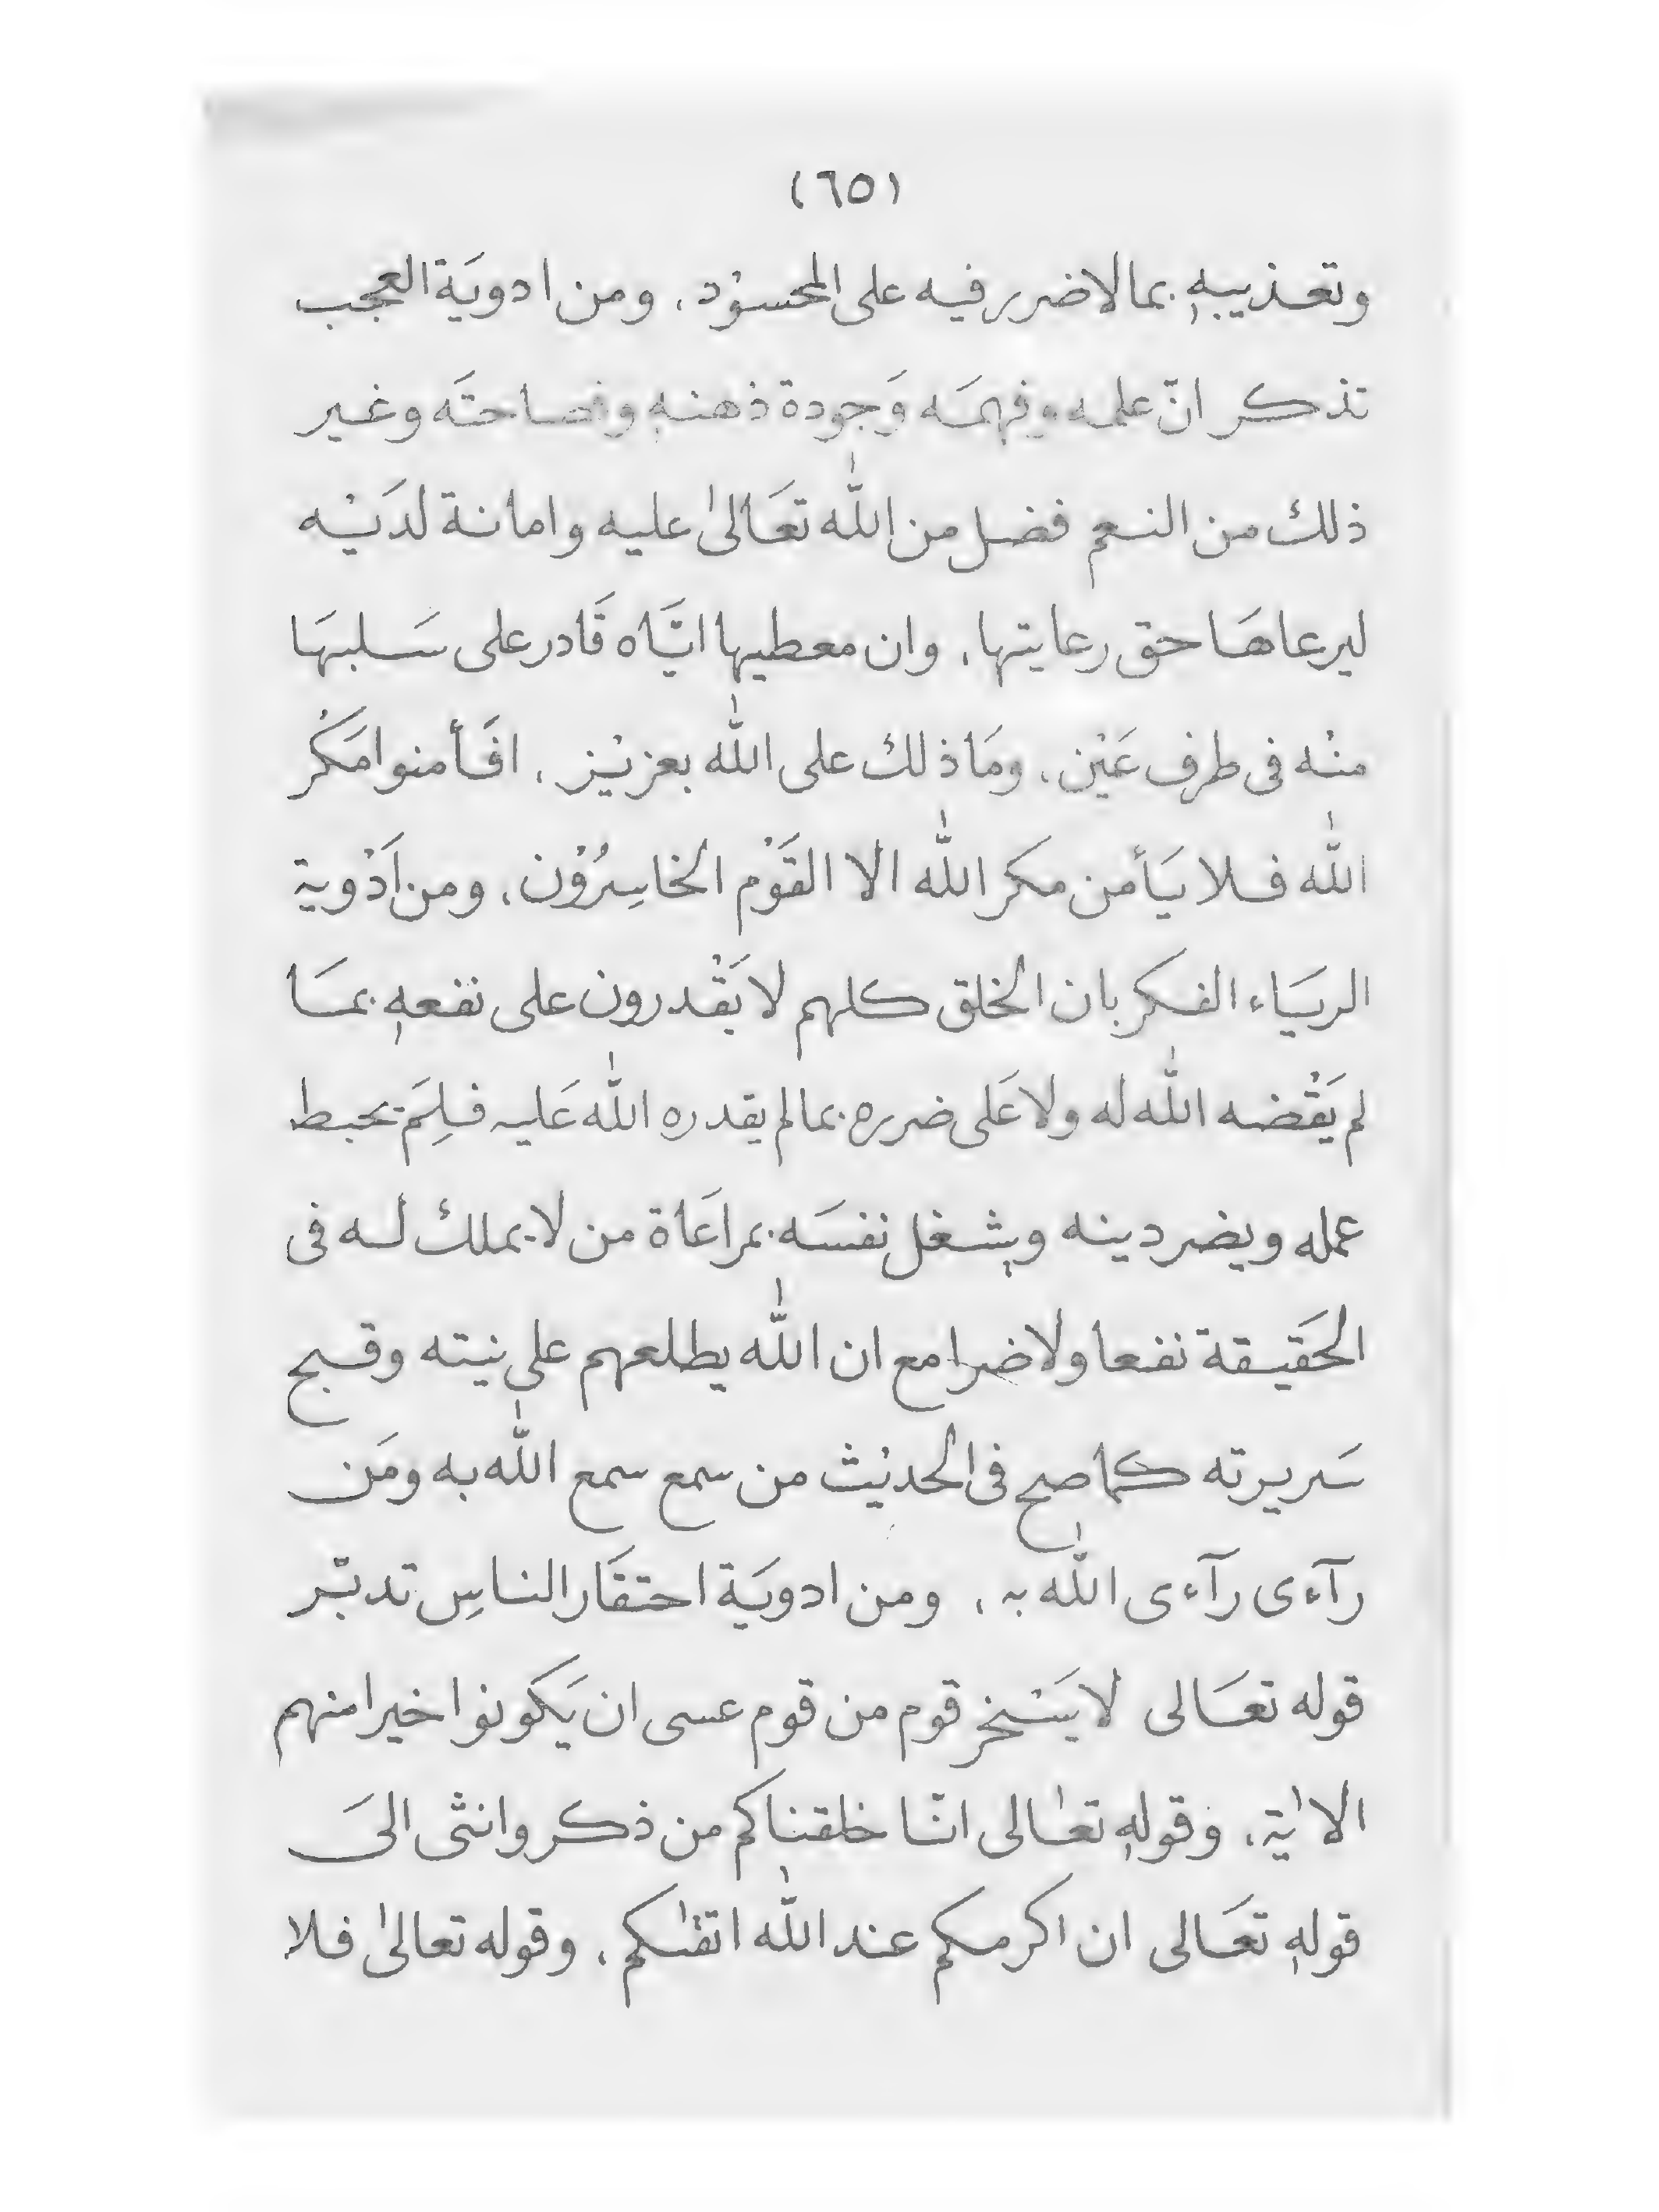 (٦٥)
وتعذيبه بما لا ضرر فيه على المحسوْد، ومن ادويَة العجب
تذكر انّ علمه وفهمَه وَجودة ذهنه وفصاحتَه وغير
ذلك من النعم فضل من اللّٰه تعَالىٰ عليه وامانة لدَيْه
ليرعاهَا حق رعايتها، وان معطيها ايَّاه قَادر على سَلبهَا
منْه فى طرف عَيْن، ومَا ذلك على اللّٰه بعزيْز، افَأمنوا مَكْر
اللّٰه فلا يَأمن مكر اللّٰه الا القَوْم الخاسِرُوْن، ومن اَدْوية
الريَاء الفكر بان الخلق كلهم لا يَقْدرون على نفعه بمَا
لم يَقْضه اللّٰه له ولا عَلى ضرره بما لم يقدره اللّٰه عَليه فلِمَ يحبط
عمله ويضر دينه ويشغل نفسَه بمراعَاة من لا يملك له فى
الحَقيقة نفعا ولا ضرا مع ان اللّٰه يطلعهم على نيته وقبح
سَريرته كما صح فى الحديْث من سمع سمع اللّٰه به ومَن
رآءى رآءى اللّٰه به، ومن ادويَة احتقَار الناسِ تدبّر
قوله تعَالى لا يَسْخر قوم من قوم عسى ان يَكونوا خيرا منهم
الاٰية، وقوله تعٰالى انّا خلقناكم من ذكر وانثى الىَ
قوله تعَالى ان اكرمكم عند اللّٰه اتقٰكم، وقوله تعالىٰ فلا